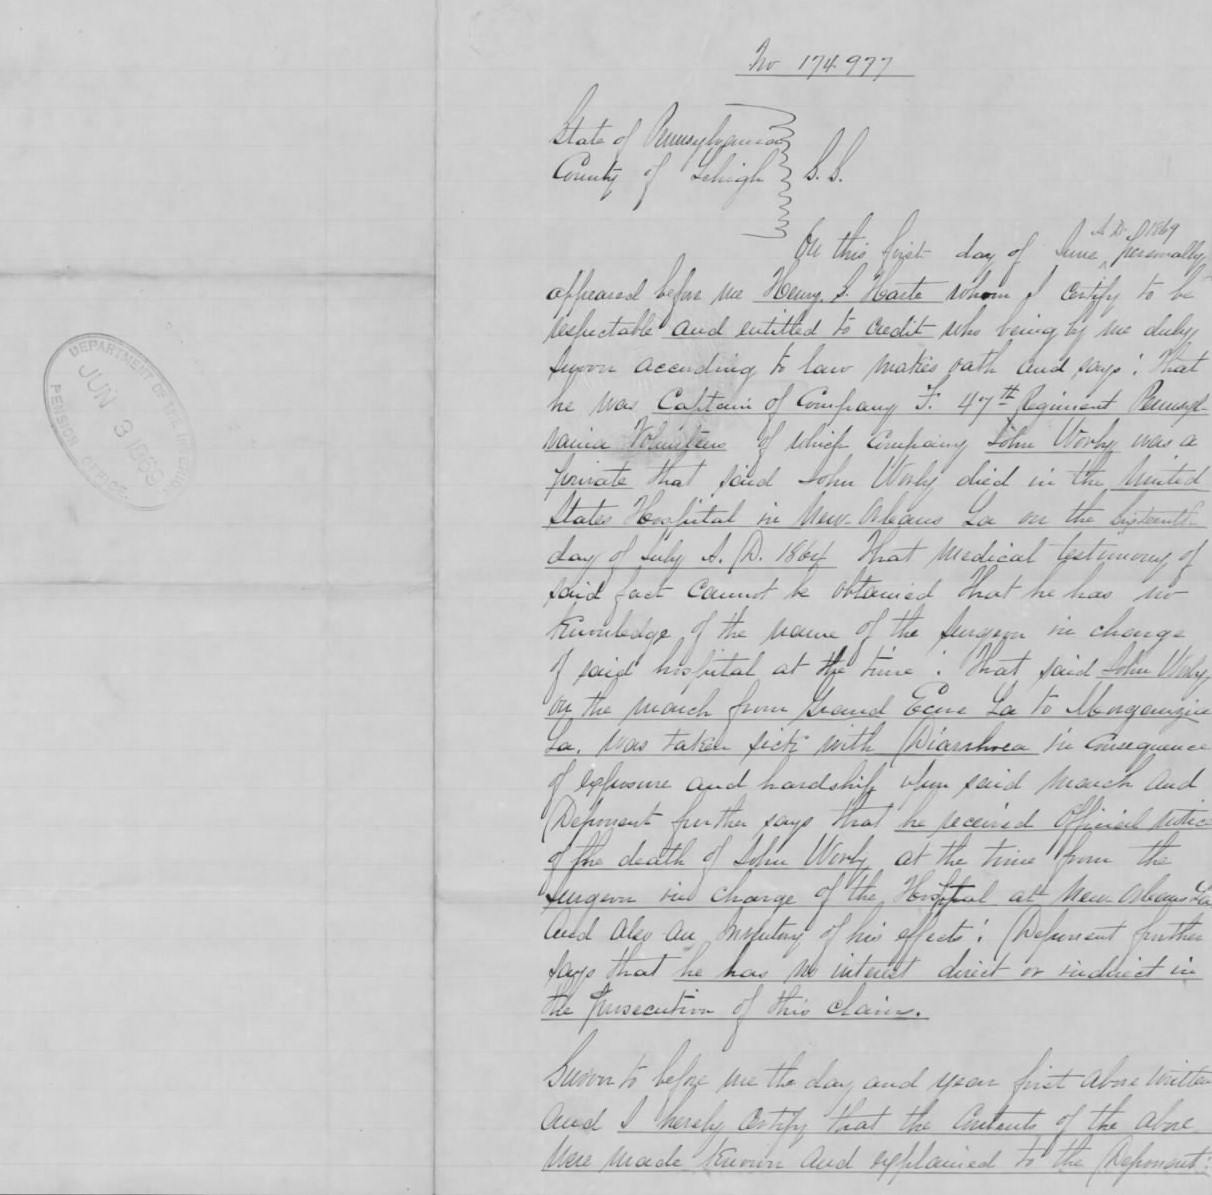 No 174.977
State of Pennsylvania
County of Lehigh S.S.
A.D. 1869
On this first day of June, personally
appeared before me Henry S. Harte whom I certify to be
respectable and entitled to credit who being by me duly
sworn according to law makes oath and says: That
he was Captain of Company F. 47th Regiment Pennsyl-
vania Volunteers of which Company John Worly was a
private that said John Worly died in the United
States Hospital in New Orleans La on the Sixteenth
day of July A. D. 1864 That medical testimony of
said fact cannot be obtained That he has no
knowledge of the name of the Surgeon in charge
of said hospital at the time: That said John Worly
on the march from Grand Ecore La to Morganzia
La. was taken sick with Diarrhoea in consequence
of exposure and hardship upon said march and
Deponent further says that he received Official notice
of the death of John Worly at the time from the
Surgeon in charge of the Hospital at New Orleans La
and also an Inventory of his effects: Deponent further
says that he has no interest direct or indirect in
the prosecution of this claim.
Sworn to before me the day and year first above written
and I hereby certify that the Contents of the above
were made known and explained to the Deponent:
DEPARTMENT OF THE INTERIOR
JUN 3 1869
PENSION OFFICE.